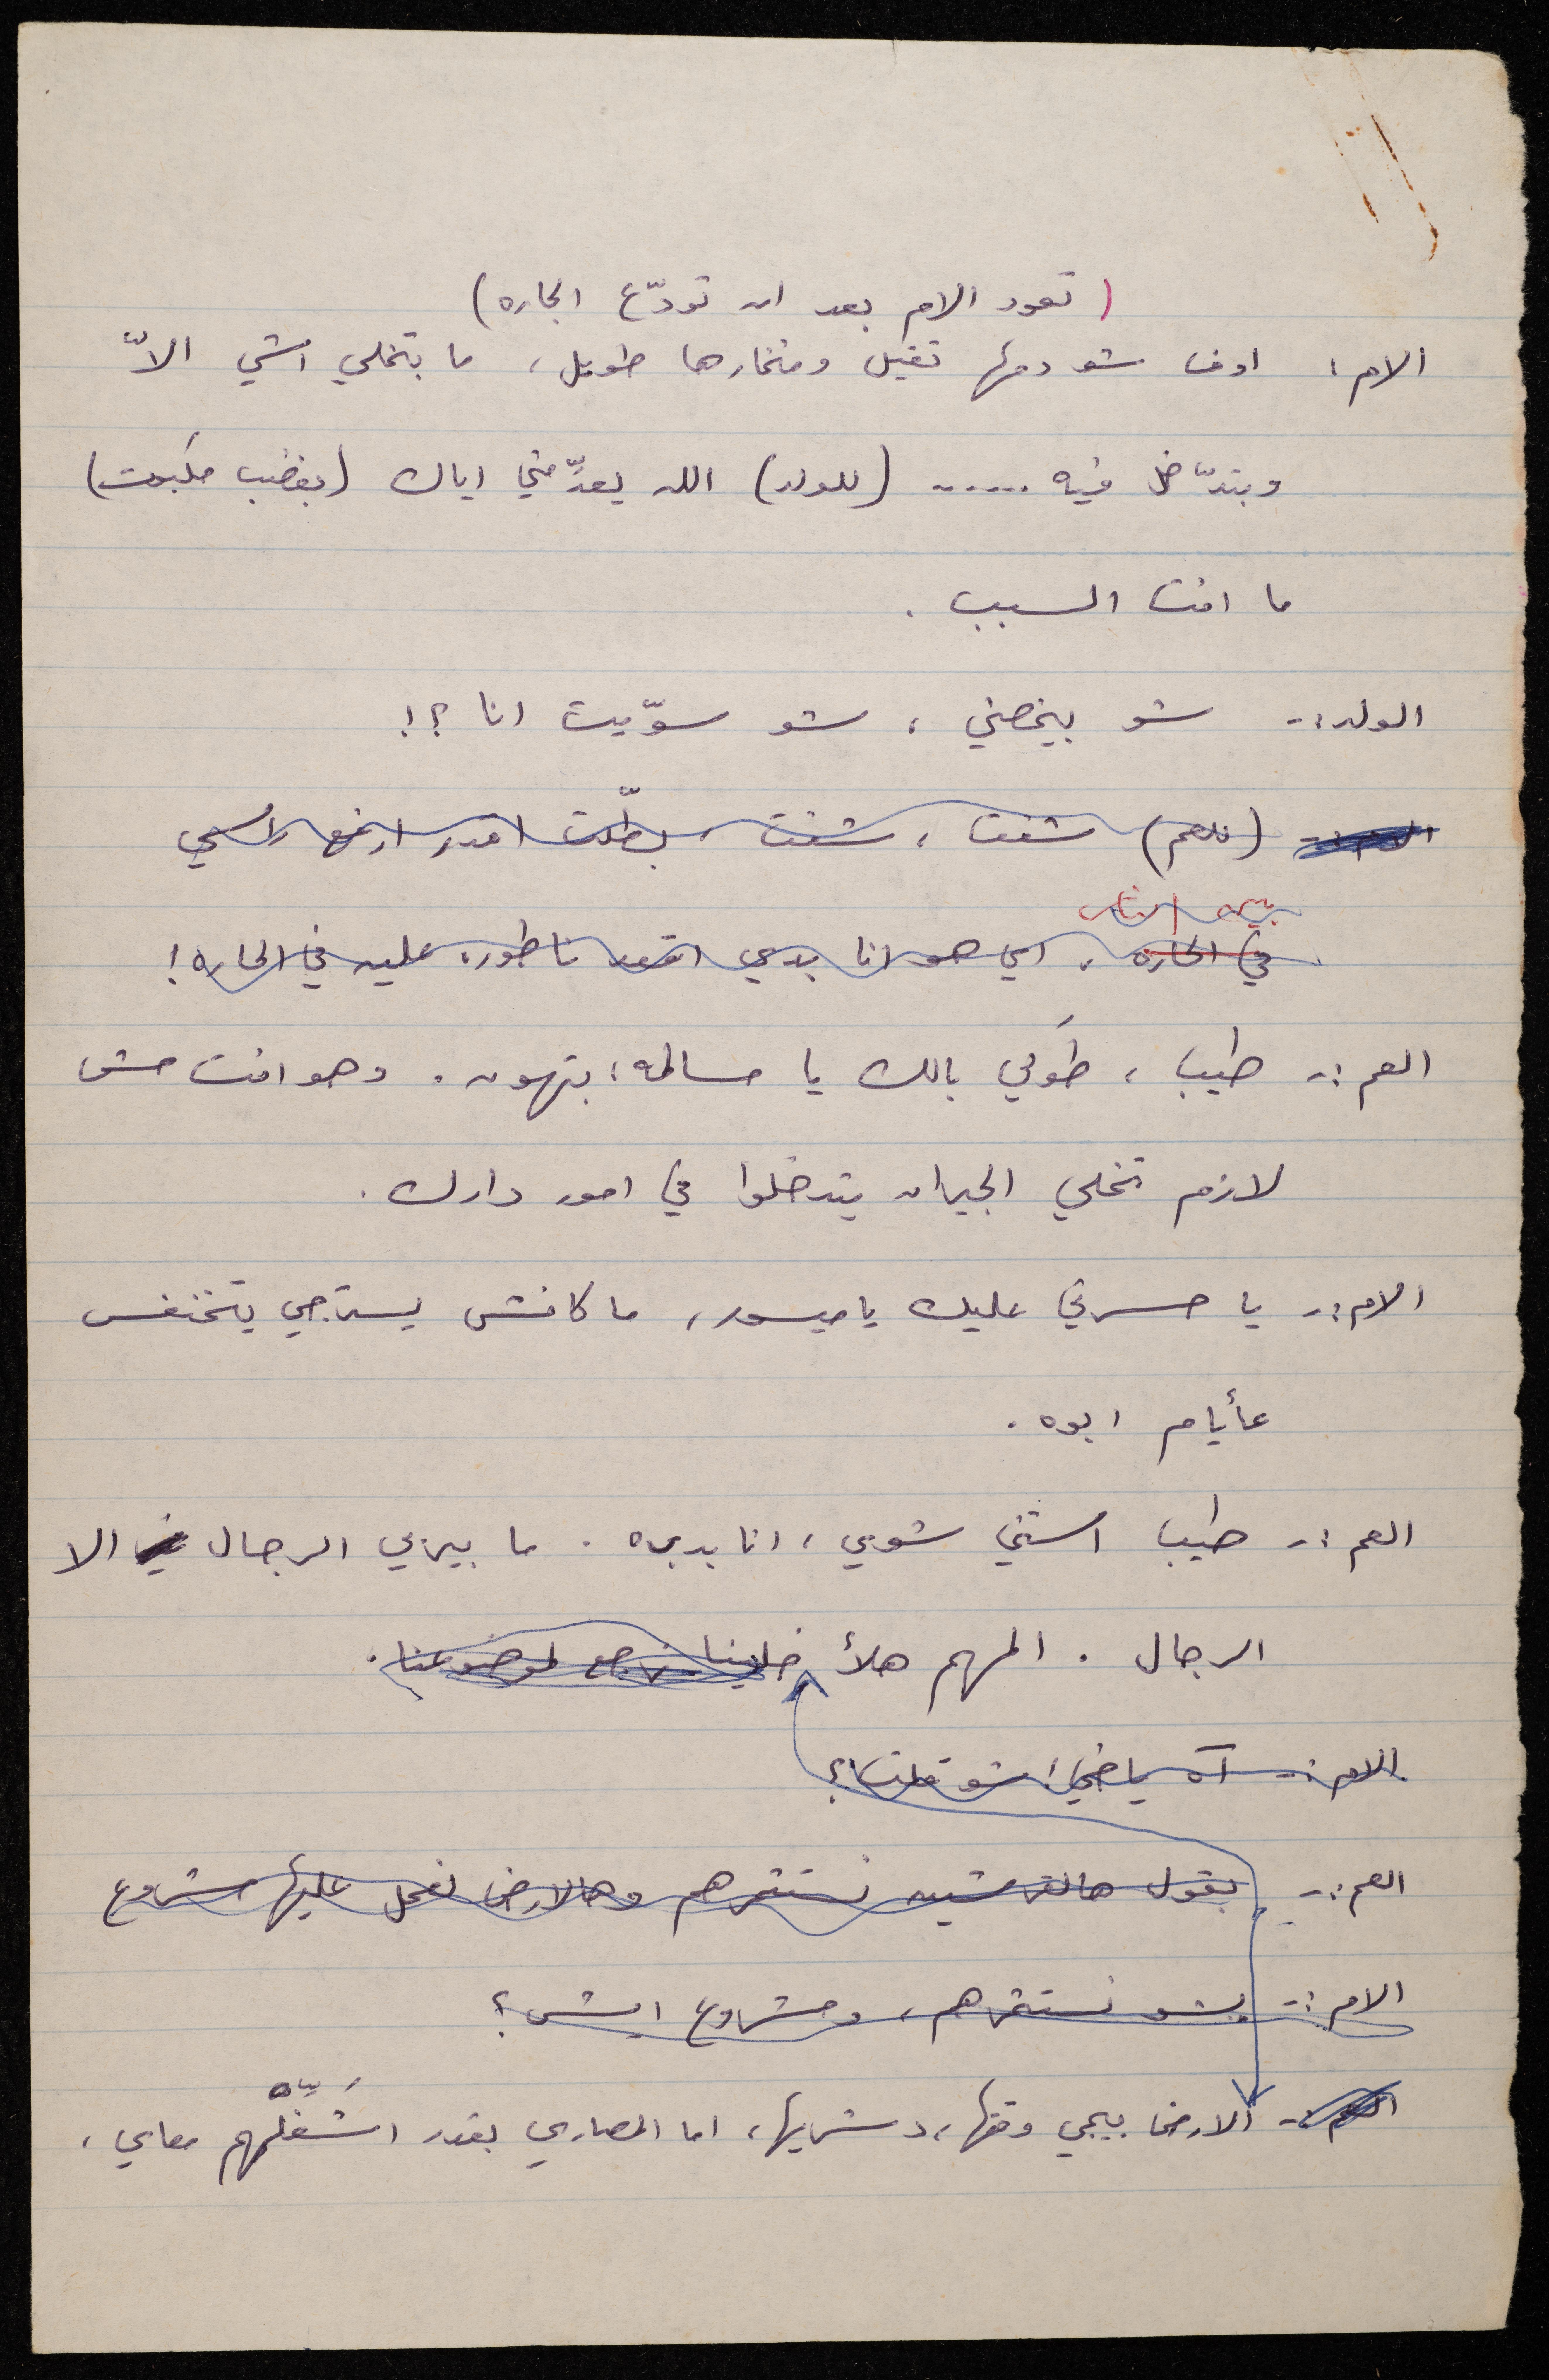 (تعود الام بعد ان تودّع الجاره)
الام: اوف شو دمها ثقيل ومنخارها طويل، ما بتخلي اشي الاّ
وبتدّخل فيه ...... (للولد) الله يعدّمني اياك (بغضب مكبوت)
ما انت السبب.
الولد:- شو بيخصني، شو سوّيت انا؟!
(للعم) شفت، شفت، بطّلت اقدر ارفع راسي
بين الناس
في الحاره، اي هو انا بدي اقعد ناطوره عليه في الحاره!
العم:- طيب، طَولي بالك يا مسالمه، بتهون. وهو انت مش
لازم تخلي الجيران يتدخلوا في امور دارك.
الام:- يا حسرتي عليك يا ميسور، ما كانش يسترجي يتخنفس
عأيام ابوه.
العم:- طيب استني شوي، انا بدبره. ما بيربي الرجال الا
الرجال. المهم هلأ خلينا نرجع لموضوعنا.
الام:- آه ياخي، شو قلت؟
العم:- بقول هالقرشين نستثمرهم وهالارض نعمل عليها مشروع
الام:- شو نستثمرهم، ومشروع ايش؟
العم:- الارض بييجي وقتها، اما المصاري بقدر اشَغّلهم معاي،